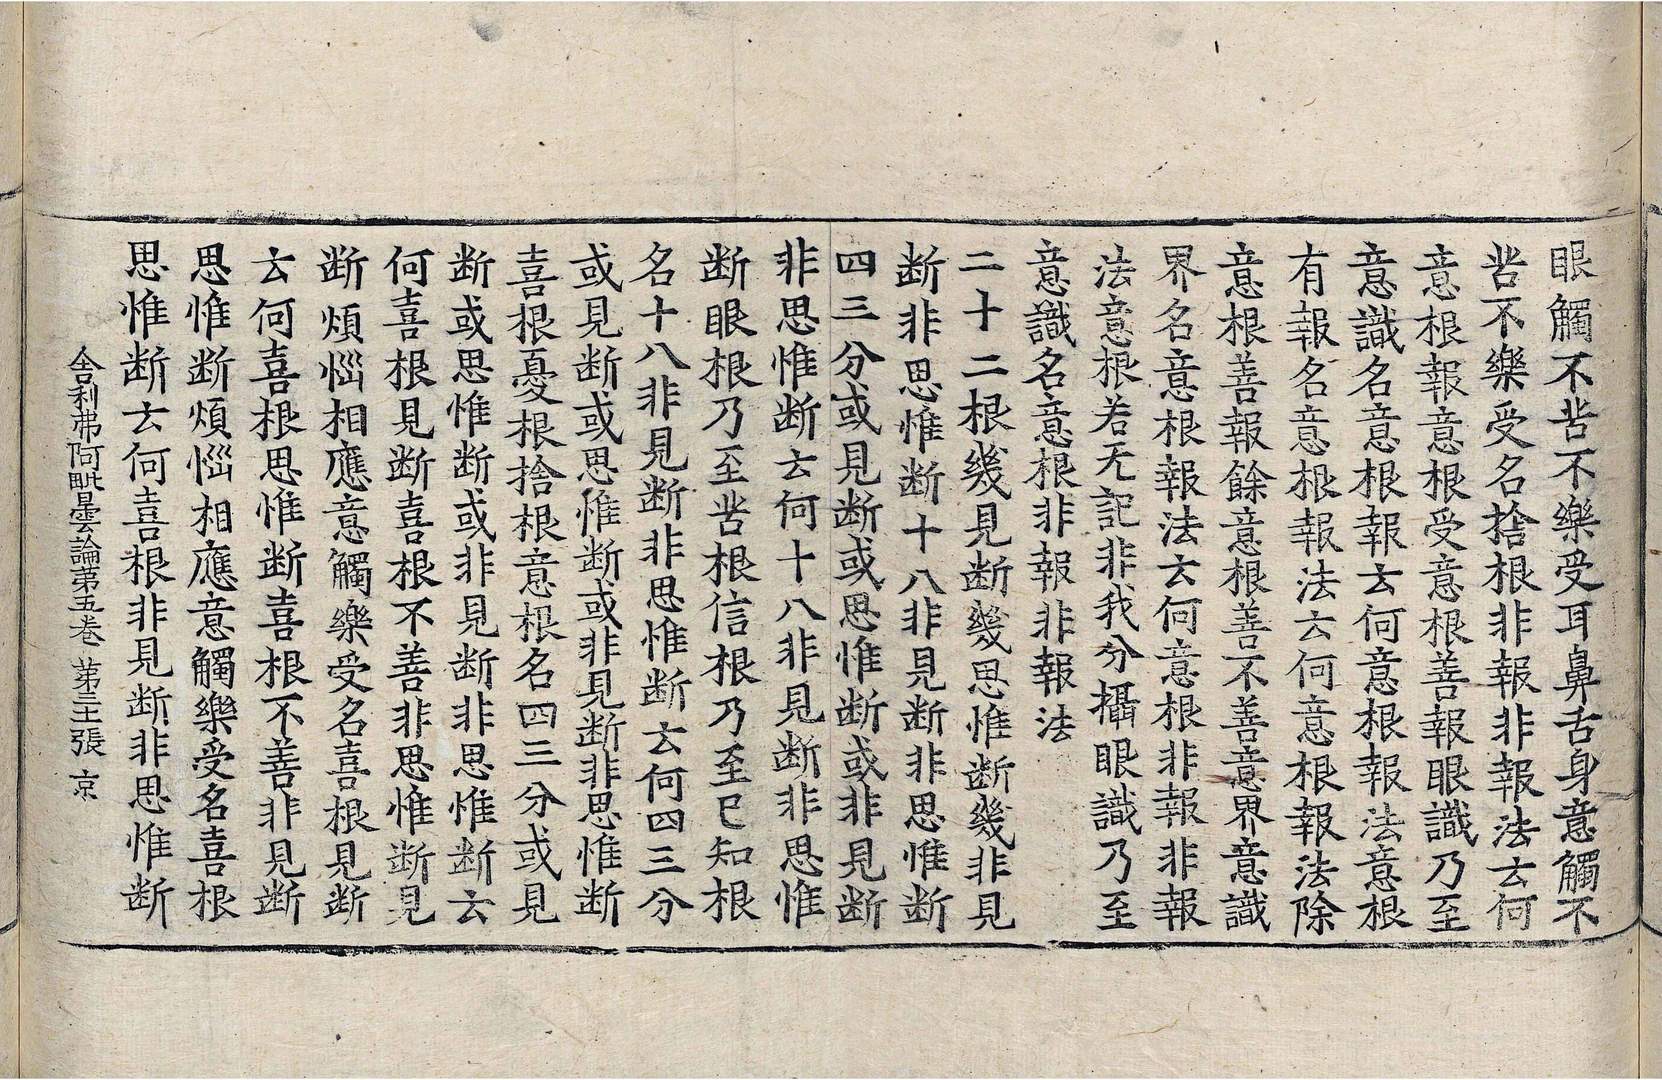 眼觸不苦不樂受耳鼻舌身意觸不
苦不樂受名捨根非報非報法云何
意根報意根受意根善報眼識乃至
意識名意根報云何意根報法意根
有報名意根報法云何意根報法除
意根善報餘意根善不善意界意識
界名意根報法云何意根非報非報
法意根若无記非我分攝眼識乃至
意識名意根非報非報法
二十二根幾見断幾思惟断幾非見
断非思惟断十八非見断非思惟断
四三分或見断或思惟断或非見断
非思惟断云何十八非見断非思惟
断眼根乃至苦根信根乃至已知根
名十八非見断非思惟断云何四三分
或見断或思惟断或非見断非思惟断
喜根憂根捨根意根名四三分或見
断或思惟断或非見断非思惟断云
何喜根見断喜根不善非思惟断見
断煩惱相應意觸樂受名喜根見断
云何喜根思惟断喜根不善非見断
思惟断煩惱相應意觸樂受名喜根
思惟断云何喜根非見断非思惟断
舍利弗阿毗曇論第五卷 第三十張 京